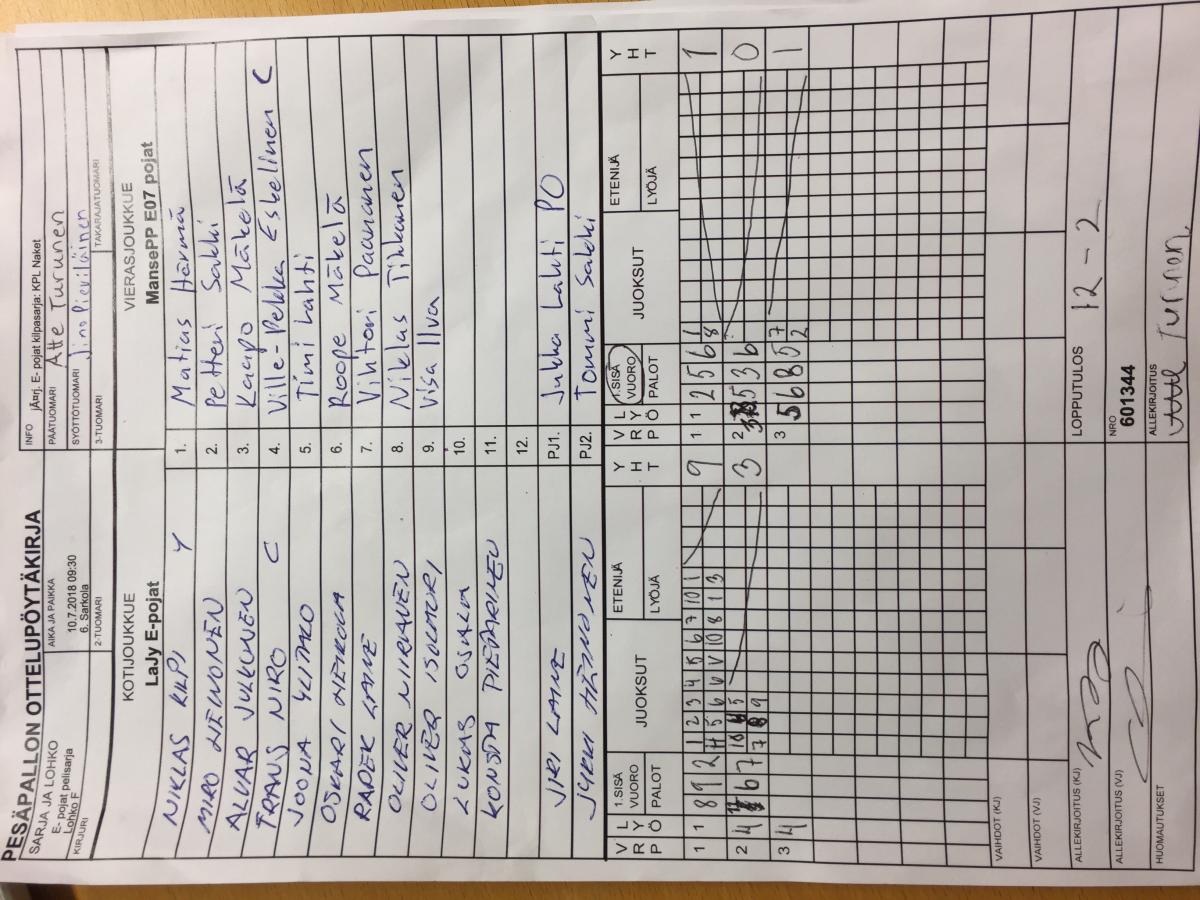 PESÄPALLON OTTELUPÖYTÄKIRJA
SARJA JA LOHKO
E- pojat pelisarja
Lohko F
AIKA JA PAIKKA
10.7.2018 09:30
6. Sarkola
INFO jÄ¤rj. E- pojat kilpasarja: KPL Naket
PÄÄTUOMARI Atte Turunen
SYÖTTÖTUOMARI
KIRJURI
2-TUOMARI
3-TUOMARI
TAKARAJATUOMARI
KOTIJOUKKUE
LaJy E-pojat
VIERASJOUKKUE
MansePP E07 pojat
NIKLAS KILPI Y
1. Matias Härmä
MIRO LIENONEN
2. Petteri Sakki
ALVAR JULKUNEN
3. Kaapo Mäkelä
FRANS NIRO C
4. Ville-Pekka Eskelinen C
JOONA YLITALO
5. Timi Lahti
OSKARI HEIKOLA
6. Roope Mäkelä
RADEK LAINE
7. Vihtori Paananen
OLIVER NIIRANEN
8. Niklas Tikkanen
OLIVER ISOMÖRI
9. Visa Ilva
LUKAS OSALA
10.
KONSTA PIETARINEN
11.
12.
JRI LAINE
PJ1. Jukka Lahti PO
JYRKI HÄNNONEN
PJ2. Tommi Sakki
V L
R Y
P Ö
1.SISÄ
VUORO
PALOT
JUOKSUT
ETENIJÄ
LYÖJÄ
Y
H
T
V L
R Y
P Ö
1.SISÄ
VUORO
PALOT
JUOKSUT
ETENIJÄ
LYÖJÄ
Y
H
T
1 1 8 9 2 1 2 3 4 5 6 7 10 1 9
1 1 2 5 6 1 8 1
2 4 6 7 3
2 5 3 6 0
3 4
3 5 6 8 5 7 2 1
VAIHDOT (KJ)
VAIHDOT (VJ)
ALLEKIRJOITUS (KJ)
LOPPUTULOS 12 - 2
ALLEKIRJOITUS (VJ)
NRO
601344
HUOMAUTUKSET
ALLEKIRJOITUS
Atte Turunen